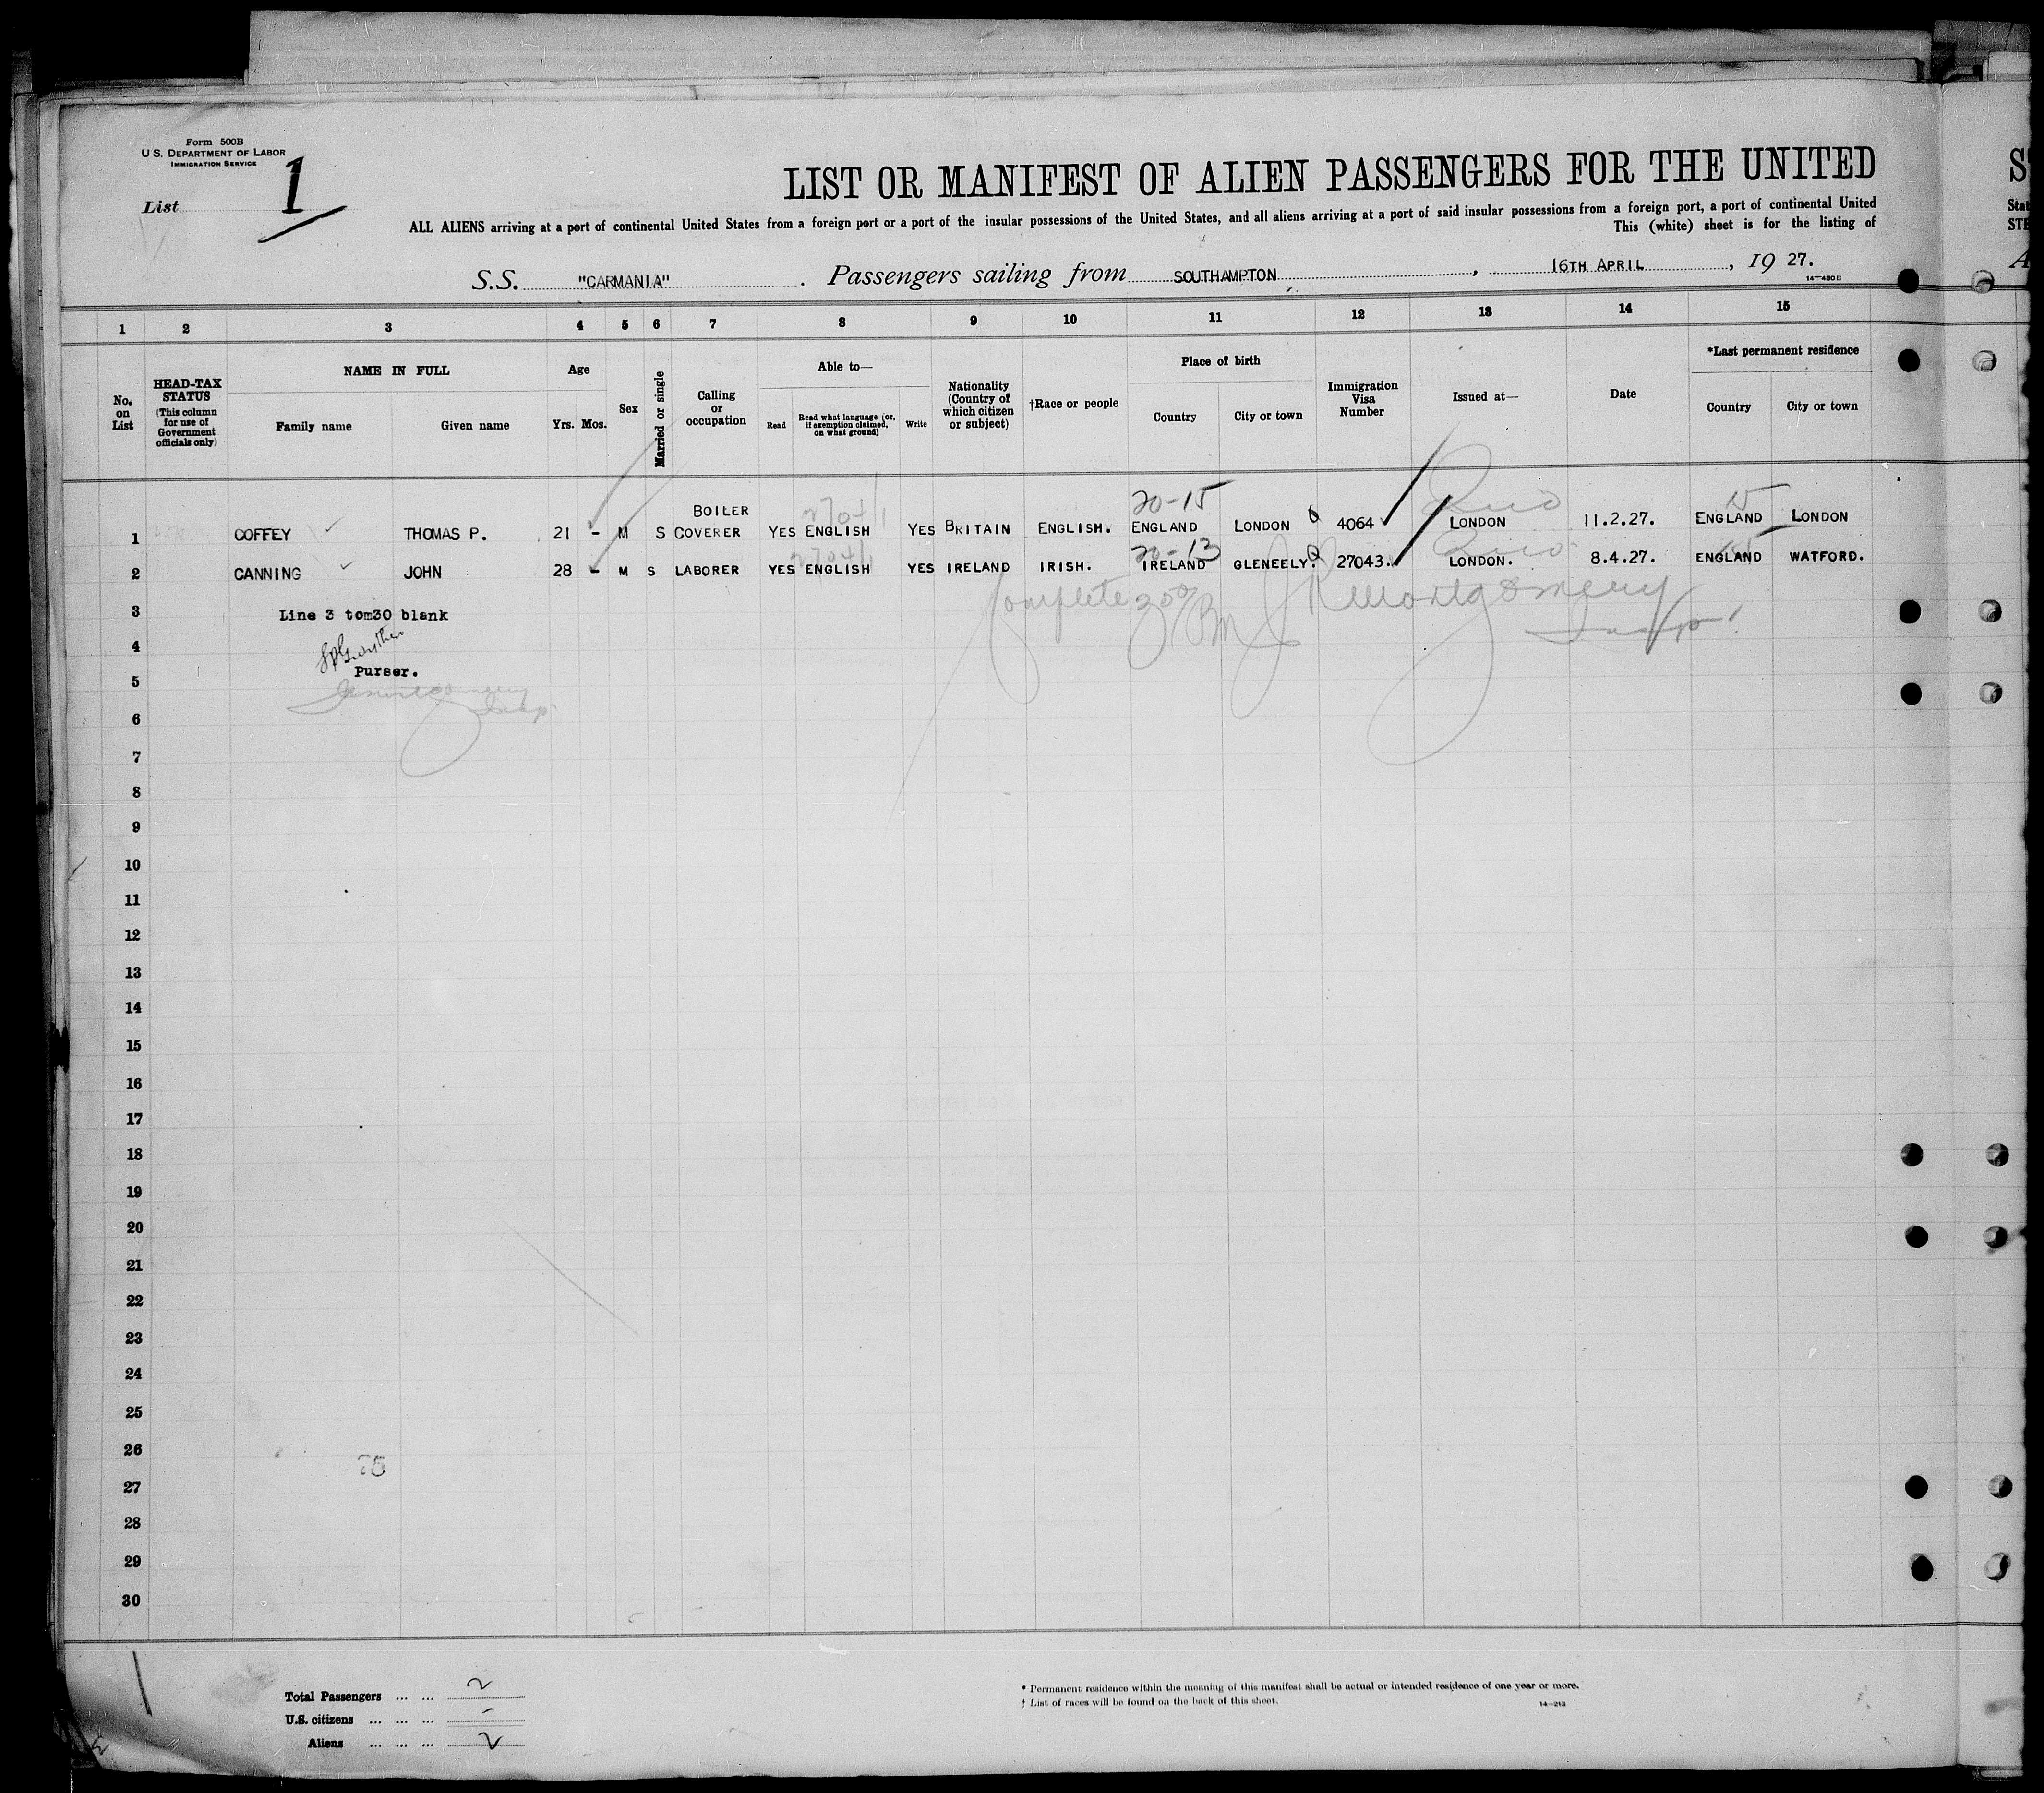 Form 500B
U. S. DEPARTMENT OF LABOR
IMMIGRATION SERVICE
List 1
LIST OR MANIFEST OF ALIEN PASSENGERS FOR THE UNITED
ALL ALIENS arriving at a port of continental United States from a foreign port or a port of the insular possessions of the United States, and all aliens arriving at a port of said insular possessions from a foreign port, a port of continental United
This (white) sheet is for the listing of
S.S. "CARMANIA" . Passengers sailing from SOUTHAMPTON , 16TH APRIL , 19 27.
14-480B
1 2 3 4 5 6 7 8 9 10 11 12 13 14 15
No. on List
HEAD-TAX STATUS
(This column for use of Government officials only)
NAME IN FULL
Family name Given name
Age
Yrs. Mos.
Sex
Married or single
Calling or occupation
Able to—
Read Read what language (or, if exemption claimed, on what ground) Write
Nationality (Country of which citizen or subject)
†Race or people
Place of birth
Country City or town
Immigration Visa Number
Issued at—
Date
*Last permanent residence
Country City or town
20-15 15
1 COFFEY THOMAS P. 21 - M S BOILER COVERER YES ENGLISH YES BRITAIN ENGLISH. ENGLAND LONDON 4064 LONDON 11.2.27. ENGLAND LONDON
20-13
2 CANNING JOHN 28 - M S LABORER YES ENGLISH YES IRELAND IRISH. IRELAND GLENEELY. 27043. LONDON. 8.4.27. ENGLAND WATFORD.
3 Line 3 tom30 blank
Complete Montgomery
Insp.
4
Purser.
5
Montgomery
Insp
6
7
8
9
10
11
12
13
14
15
16
17
18
19
20
21
22
23
24
25
26
27
28
29
30
Total Passengers ... ... 2
U.S. citizens ... ... ... -
Aliens ... ... ... 2
* Permanent residence within the meaning of this manifest shall be actual or intended residence of one year or more.
† List of races will be found on the back of this sheet.
14-212